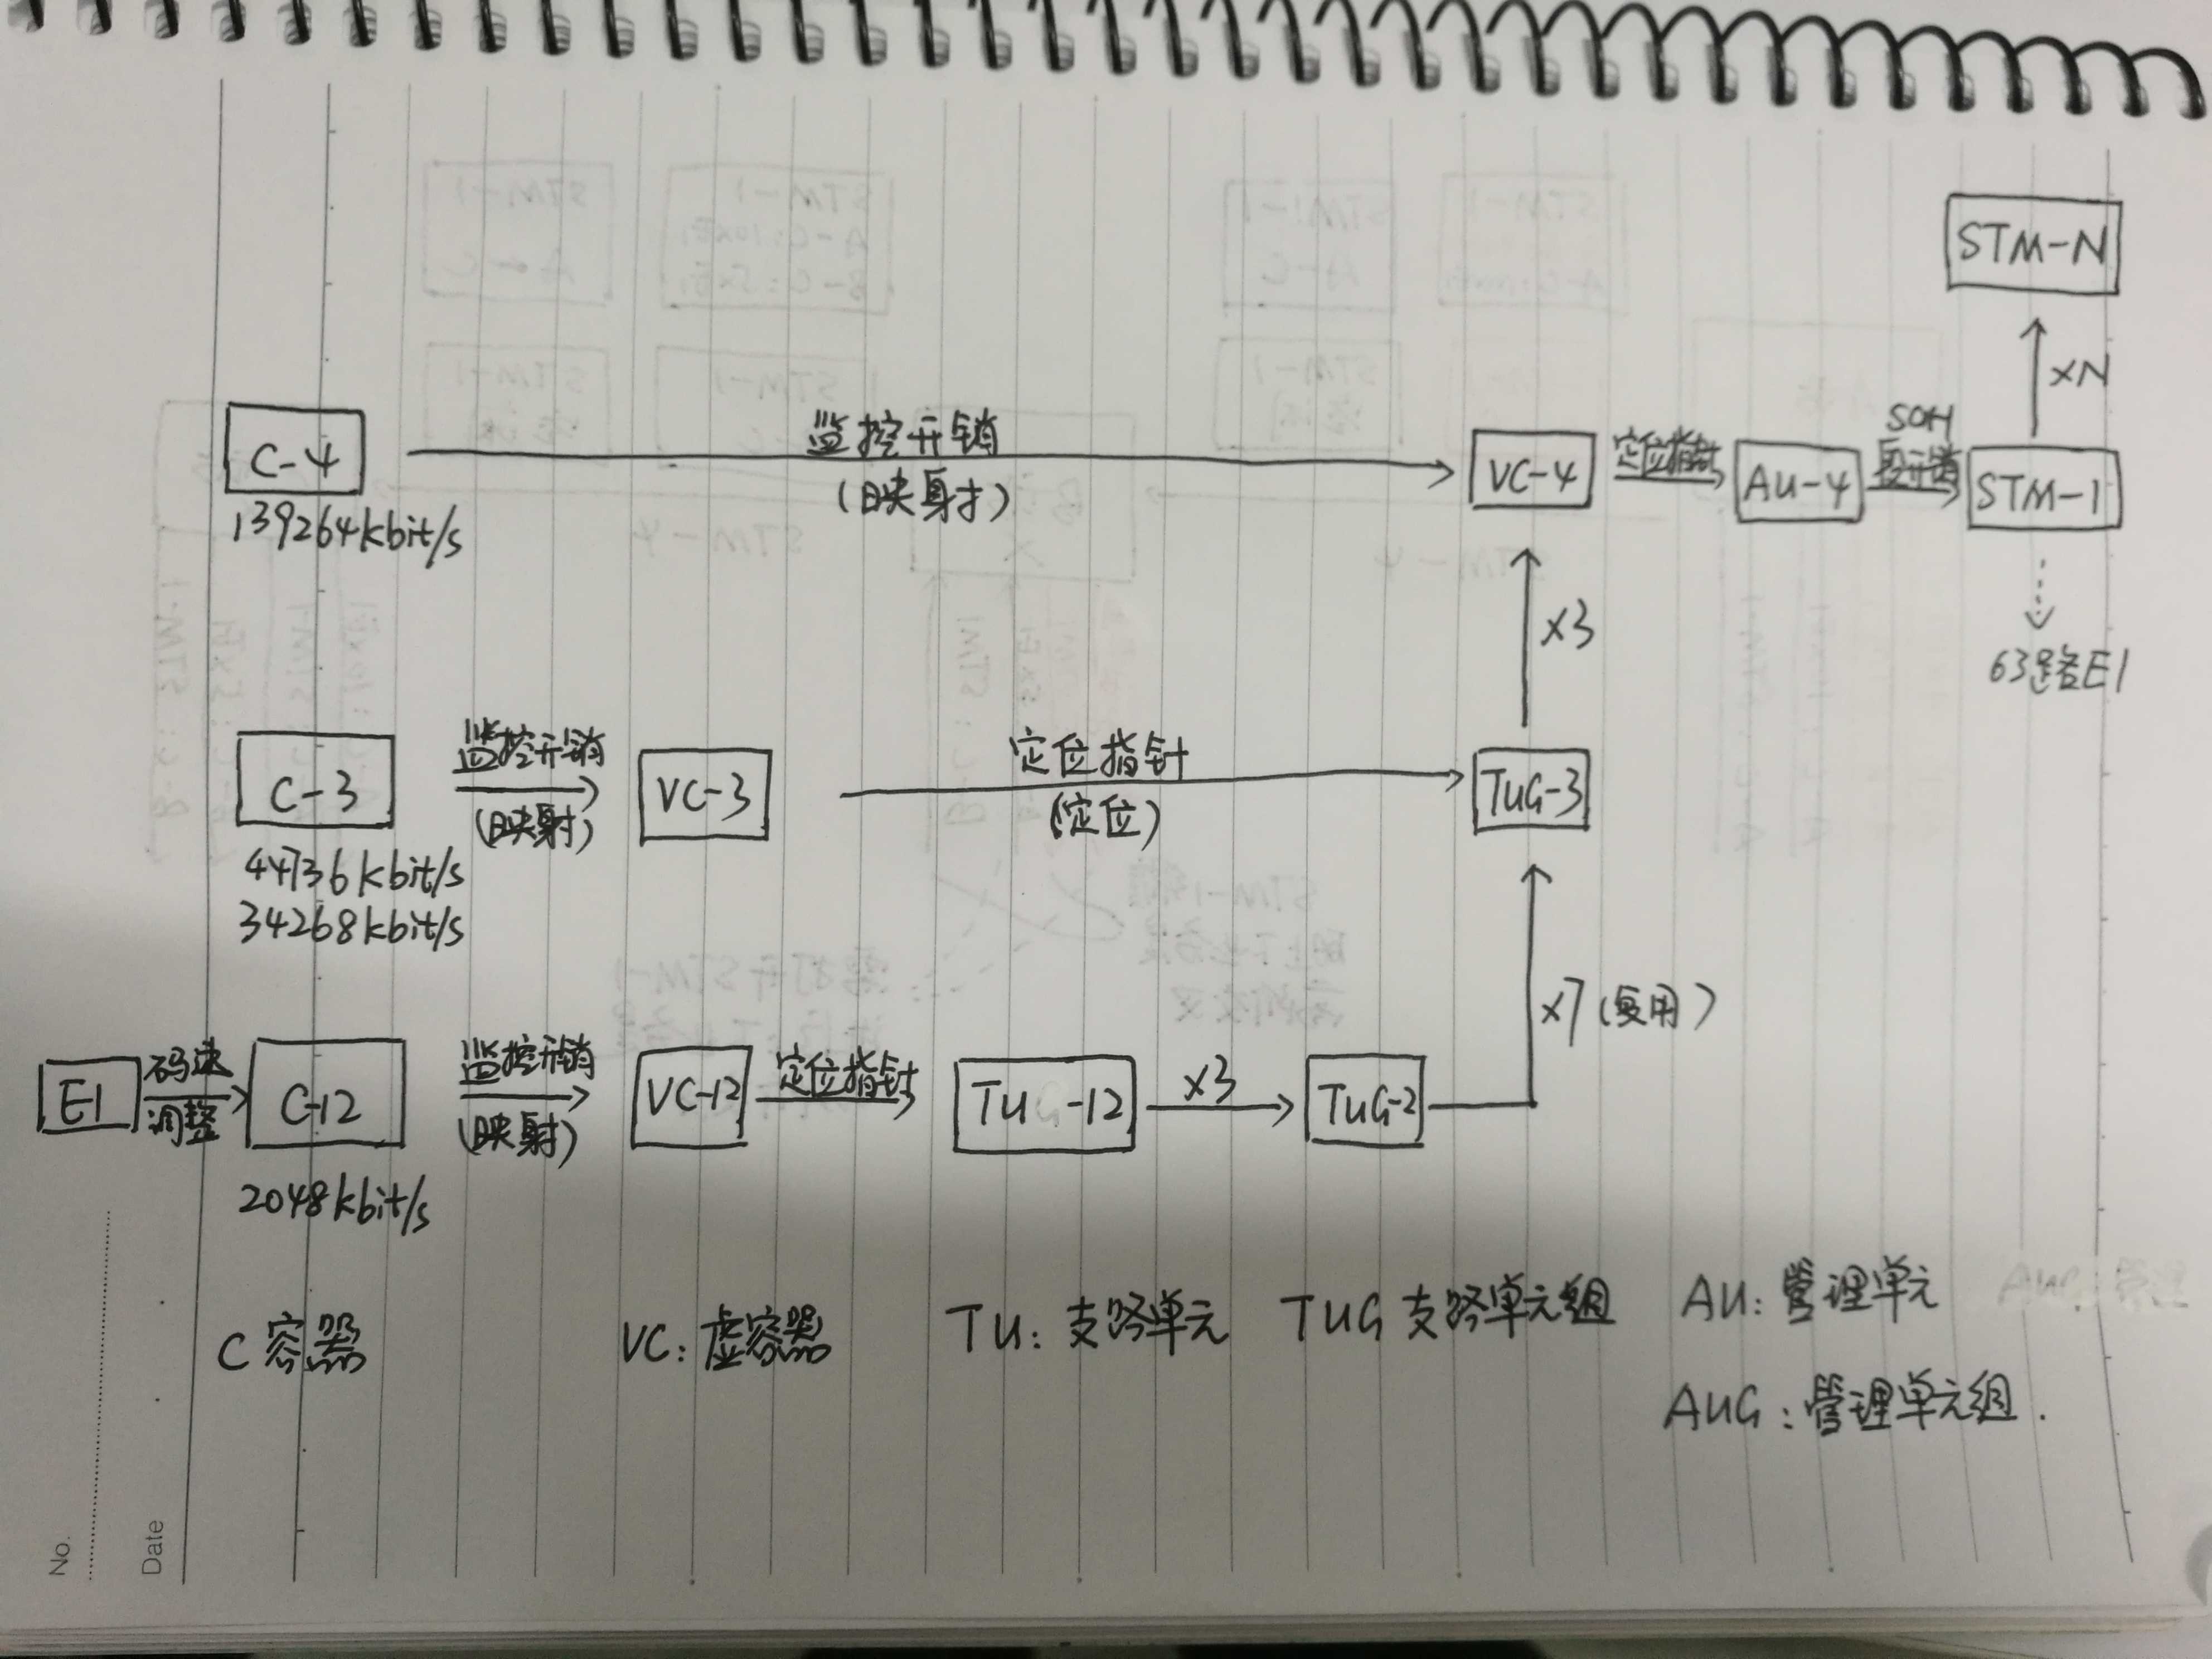 STM-N
×N
C-4
139264kbit/s
监控开销
(映射)
VC-4
定位指针
AU-4
SOH
段开销
STM-1
63路E1
×3
C-3
44736kbit/s
34268kbit/s
监控开销
(映射)
VC-3
定位指针
(定位)
TUG-3
×7(复用)
E1
码速
调整
C-12
2048kbit/s
监控开销
(映射)
VC-12
定位指针
TU -12
×3
TUG-2
C 容器
VC: 虚容器
TU: 支路单元
TUG 支路单元组
AU: 管理单元
AUG: 管理单元组.
No.
Date